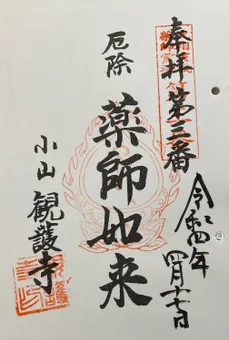 奉拝第三番
令和四年
四月十七日
厄除
薬師如来
小山
観護寺